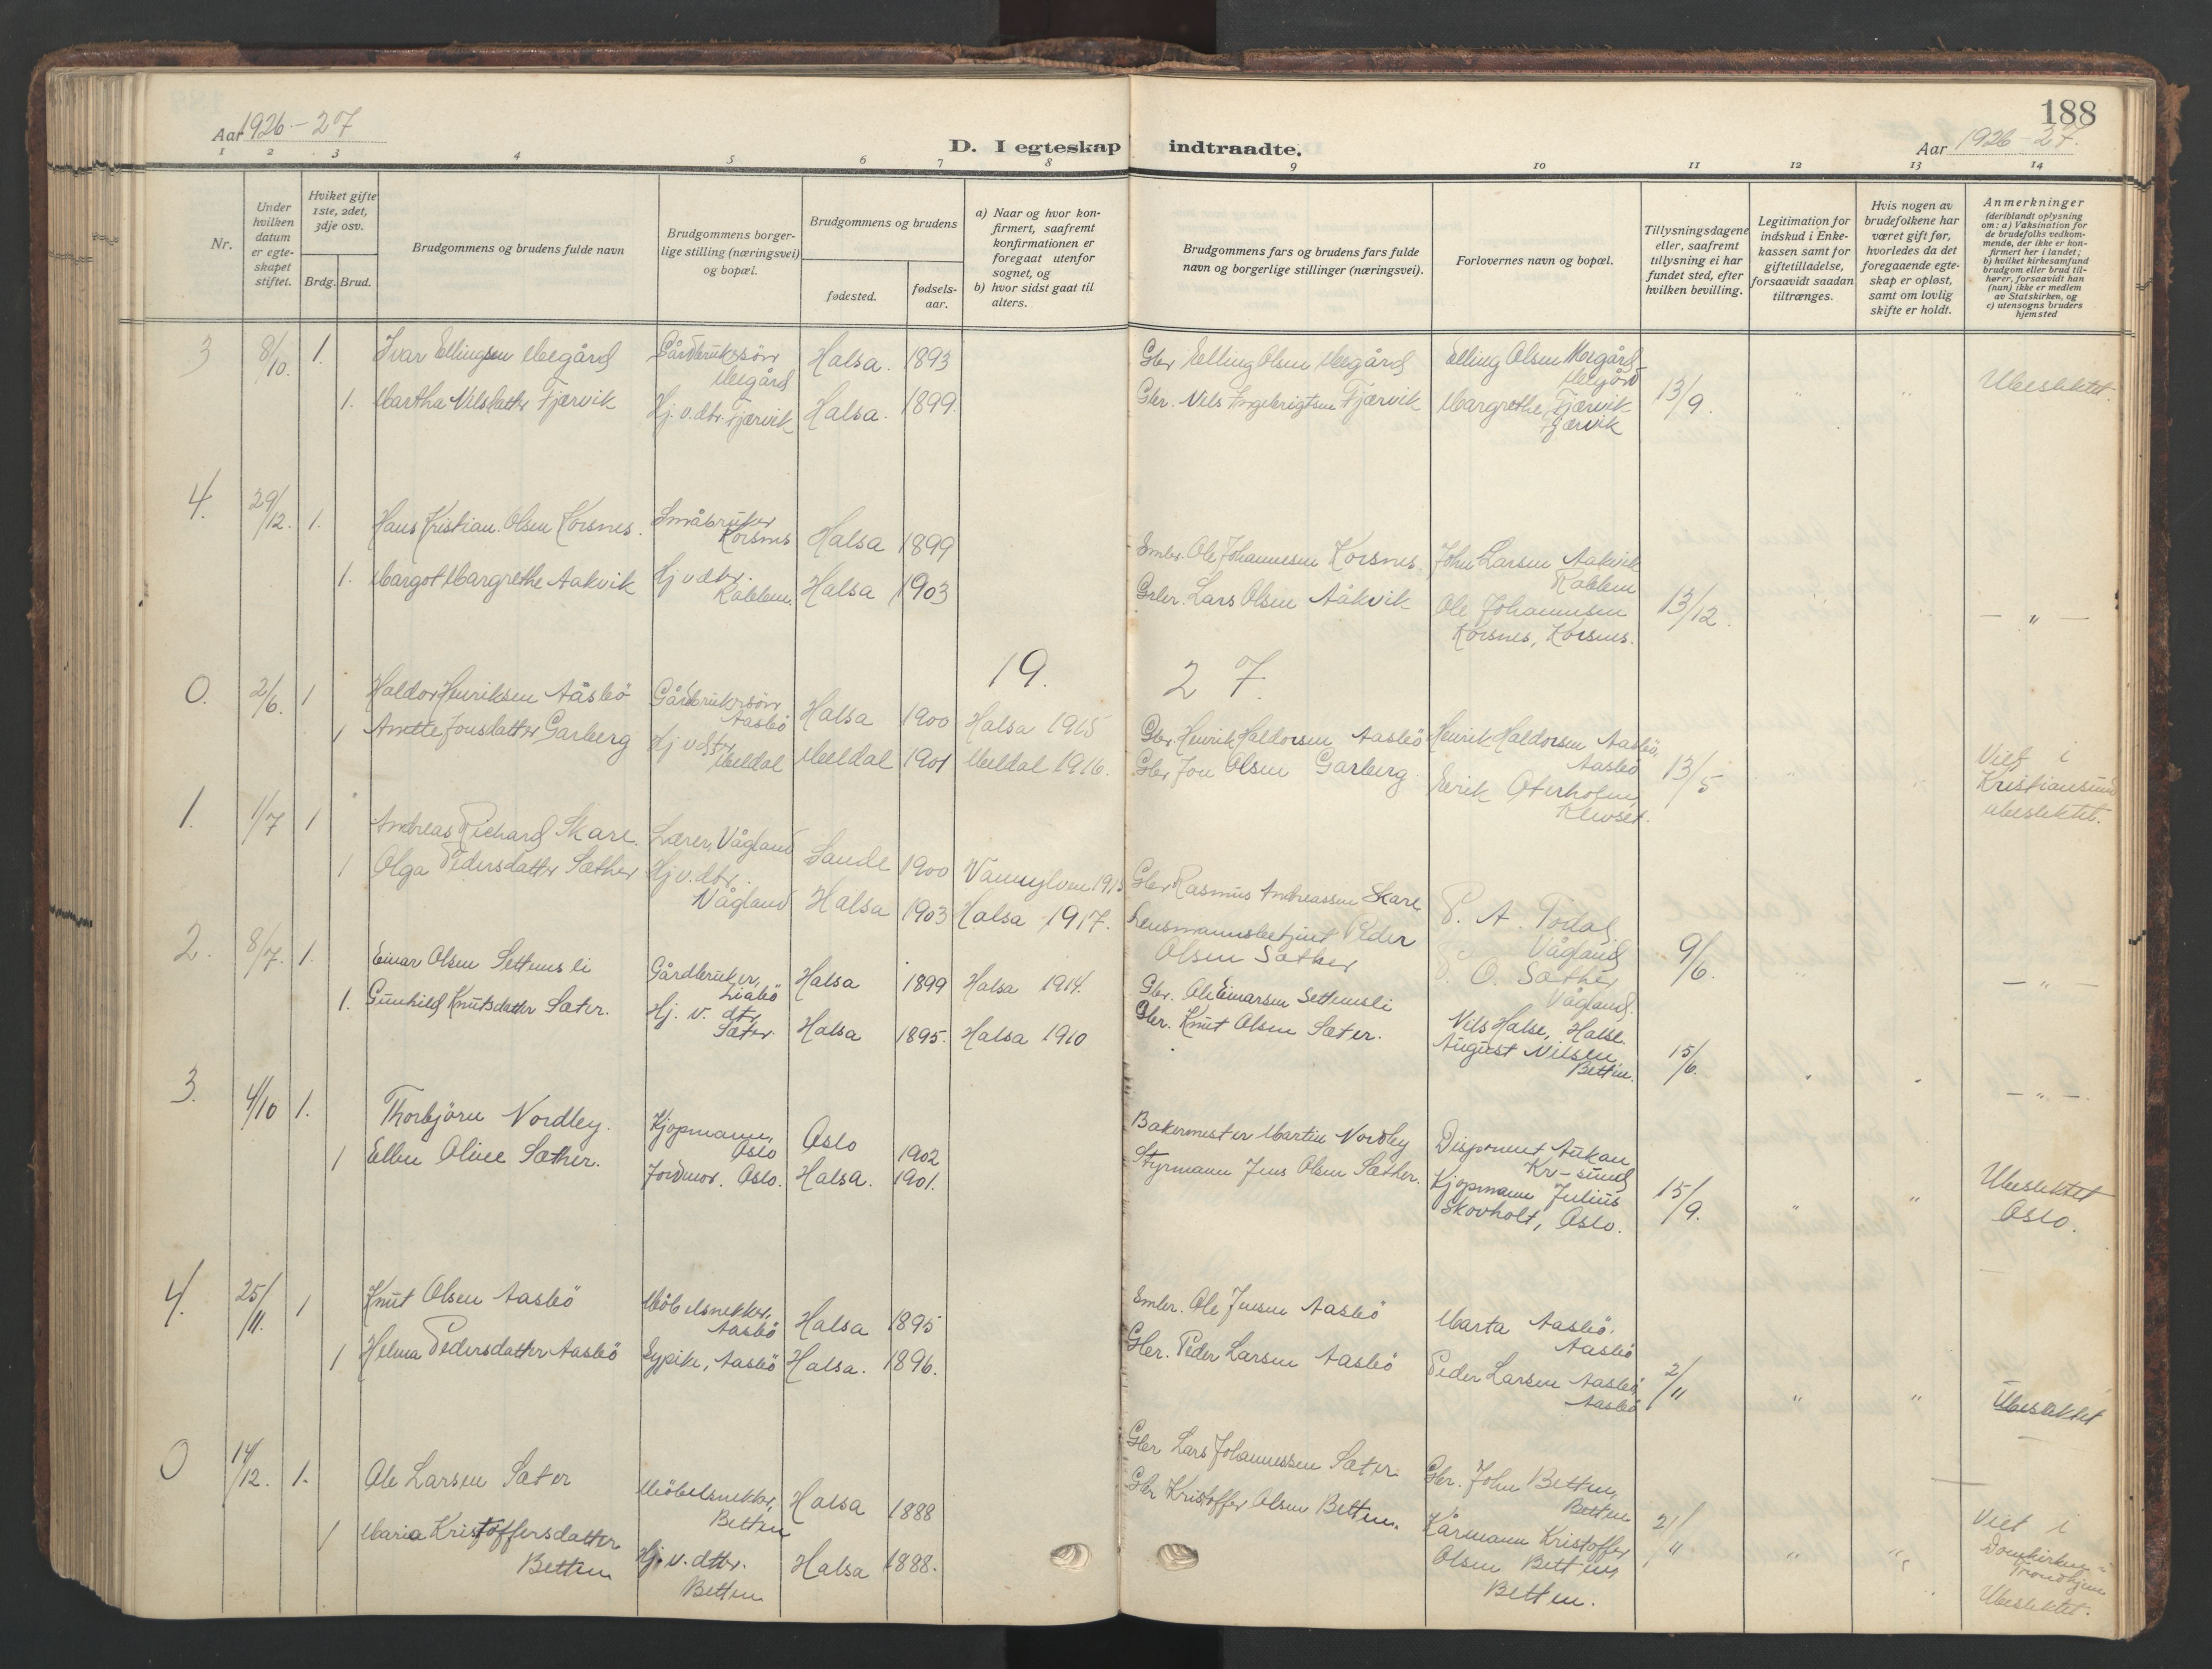 188
Aar 1926-27
D. I egteskap indtraadte.
Aar 1926-27.
1 2 3 4 5 6 7 8 9 10 11 12 13 14
Nr.
Under hvilken datum er egte-skapet stiftet.
Hviket gifte 1ste, 2det, 3dje osv.
Brdg. Brud.
Brudgommens og brudens fulde navn
Brudgommens borger-lige stilling (næringsvei) og bopæl.
Brudgommens og brudens
fødested.
fødsels-aar.
a) Naar og hvor kon-firmert, saafremt konfirmationen er foregaat utenfor sognet, og
b) hvor sidst gaat til alters.
Brudgommens fars og brudens fars fulde navn og borgerlige stillinger (næringsvei).
Forlovernes navn og bopæl.
Tillysningsdagene eller, saafremt tillysning ei har fundet sted, efter hvilken bevilling.
Legitimation for indskud i Enke-kassen samt for giftetilladelse, forsaavidt saadan tiltrænges.
Hvis nogen av brudefolkene har været gift før, hvorledes da det foregaaende egte-skap er opløst, samt om lovlig skifte er holdt.
Anmerkninger (deriblandt oplysning om: a) Vaksination for de brudefolks vedkom-mende, der ikke er kon-firmert her i landet; b) hvilket kirkesamfund brudgom eller brud til-hører, forsaavidt han (hun) ikke er medlem av Statskirken, og c) utensogns bruders hjemsted
3 8/10. 1. Ivar Ellingsen Megård Gårdbrukersönn Megård Halsa. 1893 Gbr Elling Olsen Megård Elling Olsen Megård Megård
1. Martha Nilsdatter Fjærvik Hj. v. dtr. Fjærvik Halsa. 1899. Gbr. Nils Ingebrigtsen Fjærvik Margrethe Fjærvik Fjærvik 13/9. " " Ubeslektet.
4. 29/12. 1. Hans Kristian Olsen Korsnes. Småbruker Korsnes Halsa 1899 Smbr. Ole Johannesen Korsnes. John Larsen Aakvik Rabben
1. Margot Margrethe Aakvik Hj v dtr. Rabben. Halsa 1903 Grbr. Lars Olsen Aåkvik Ole Johannesen Korsnes, Korsnes. 13/12. — " —
19. 27.
0. 2/6. 1 Haldor Henriksen Aåsbö Gårdbrukersönn Aasbö Halsa 1900 Halsa 1915 Gbr. Henrik Haldorsen Aasbö Henrik Haldorsen Aasbö, Aasbö
1 Anette Jonsdatter Garberg Hj v dtr Meldal Meldal 1901 Meldal 1916. Gbr Jon Olsen Garberg. Eirik Oterholm, Klevset. 13/5 " " Viet i Kristiansund ubeslektet.
1. 1/7 1 Andreas Richard Skare. Lærer, Vågland Sande 1900 Vannylven 1915 Gbr Rasmus Andreassen Skare P. A. Todal Vågland
1 Olga Pedersdatter Sæther Hj v. dtr. Vågland Halsa 1903 Halsa 1917. Lensmannsbetjent Peder Olsen Sæther P. O. Sæther Vågland. 9/6. — " —
2. 8/7. 1. Einar Olsen Settemsli Gårdbruker, Liabö Halsa 1899 Halsa 1914. Gbr. Ole Einarsen Settemsli Nils Halse, Halse.
1. Gunhild Knutsdatter Sæter. Hj. v. dtr, Sæter. Halsa 1895. Halsa 1910 Gbr. Knut Olsen Sæter. August Nilsen, Betten. 15/6. " " — " —.
3. 4/10 1. Thorbjörn Nordby. Kjøpmann, Oslo Oslo 1902 Bakermester Martin Nordby Disponent Aukan Kr-sund
1 Ellen Oline Sæther. Jordmor. Oslo. Halsa. 1901. Styrmann Jens Olsen Sæther. Kjøpmann Julius Skovholt, Oslo. 15/9. " " Ubeslektet Oslo.
4. 25/11. 1 Knut Olsen Aasbö Möbelsnekker, Aasbö Halsa 1895 Smbr. Ole Jensen Aasbö Marta Aasbö. Aasbö
1 Helma Pedersdatter Aasbö Sypike, Aasbö Halsa. 1896. Gbr. Peder Larsen Aasbö Peder Larsen Aasbö, Aasbö 2/11 " " Ubeslektet
0 14/12. 1. Ole Larsen Sæter Möbelsnekker, Betten Halsa 1888 Gbr Lars Johannessen Sæter. Gbr. John Betten, Betten
1 Maria Kristoffersdatter Betten Hj. v. dtr. Betten Halsa 1888. Gbr Kristoffer Olsen Betten. Kårmann Kristoffer Olsen Betten, Betten. 21/11 " " Viet i Domkirken i Trondhjem Ubeslektet.